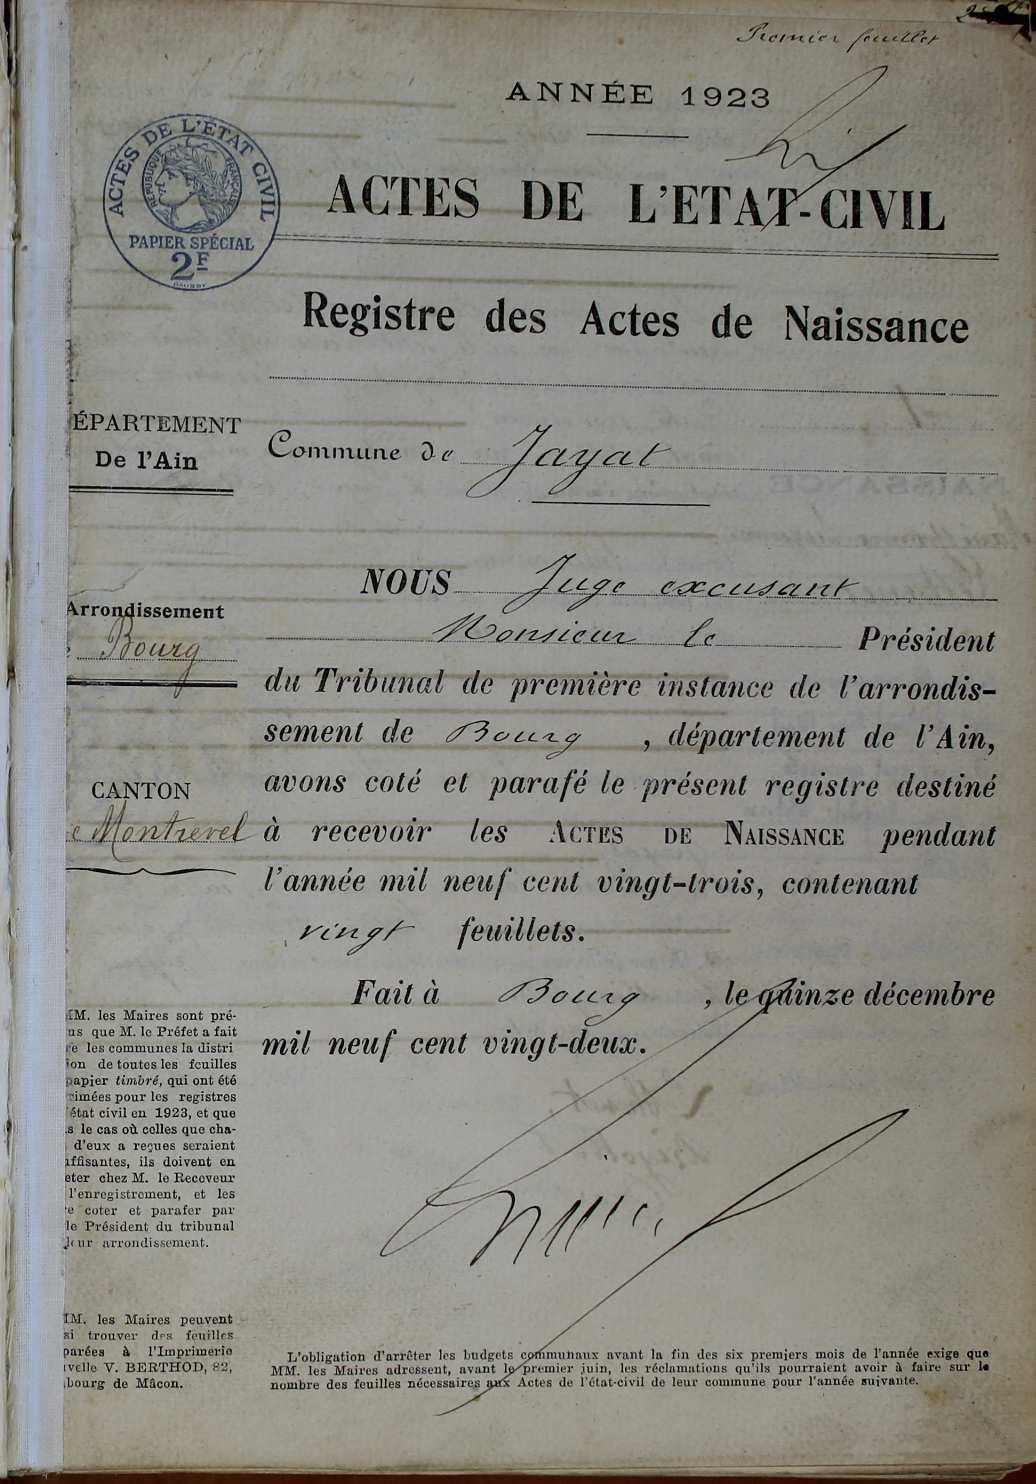 Premier feuillet
ANNÉE 1923
ACTES DE L'ÉTAT CIVIL
RÉPUBLIQUE FRANÇAISE
PAPIER SPÉCIAL
2F
ACTES DE L'ETAT-CIVIL
Registre des Actes de Naissance
ÉPARTEMENT
De l'Ain
Commune de Jayat
Arrondissement
Bourg
CANTON
e Montrevel
NOUS Juge excusant
Monsieur le Président
du Tribunal de première instance de l'arrondis-
sement de Bourg, département de l'Ain,
avons coté et parafé le présent registre destiné
à recevoir les ACTES DE NAISSANCE pendant
l'année mil neuf cent vingt-trois, contenant
vingt feuillets.
Fait à Bourg, le quinze décembre
mil neuf cent vingt-deux.
MM. les Maires sont pré-
us que M. le Préfet a fait
re les communes la distri
ion de toutes les feuilles
papier timbré, qui ont été
rimées pour les registres
'état civil en 1923, et que
s le cas où celles que cha-
d'eux a reçues seraient
uffisantes, ils doivent en
eter chez M. le Receveur
l'enregistrement, et les
re coter et parafer par
le Président du tribunal
leur arrondissement.
MM. les Maires peuvent
si trouver des feuilles
parées à l'Imprimerie
uvelle V. BERTHOD, 82,
bourg de Mâcon.
L'obligation d'arrêter les budgets communaux avant la fin des six premiers mois de l'année exige que
MM. les Maires adressent, avant le premier juin, les réclamations qu'ils pourraient avoir à faire sur le
nombre des feuilles nécessaires aux Actes de l'état-civil de leur commune pour l'année suivante.